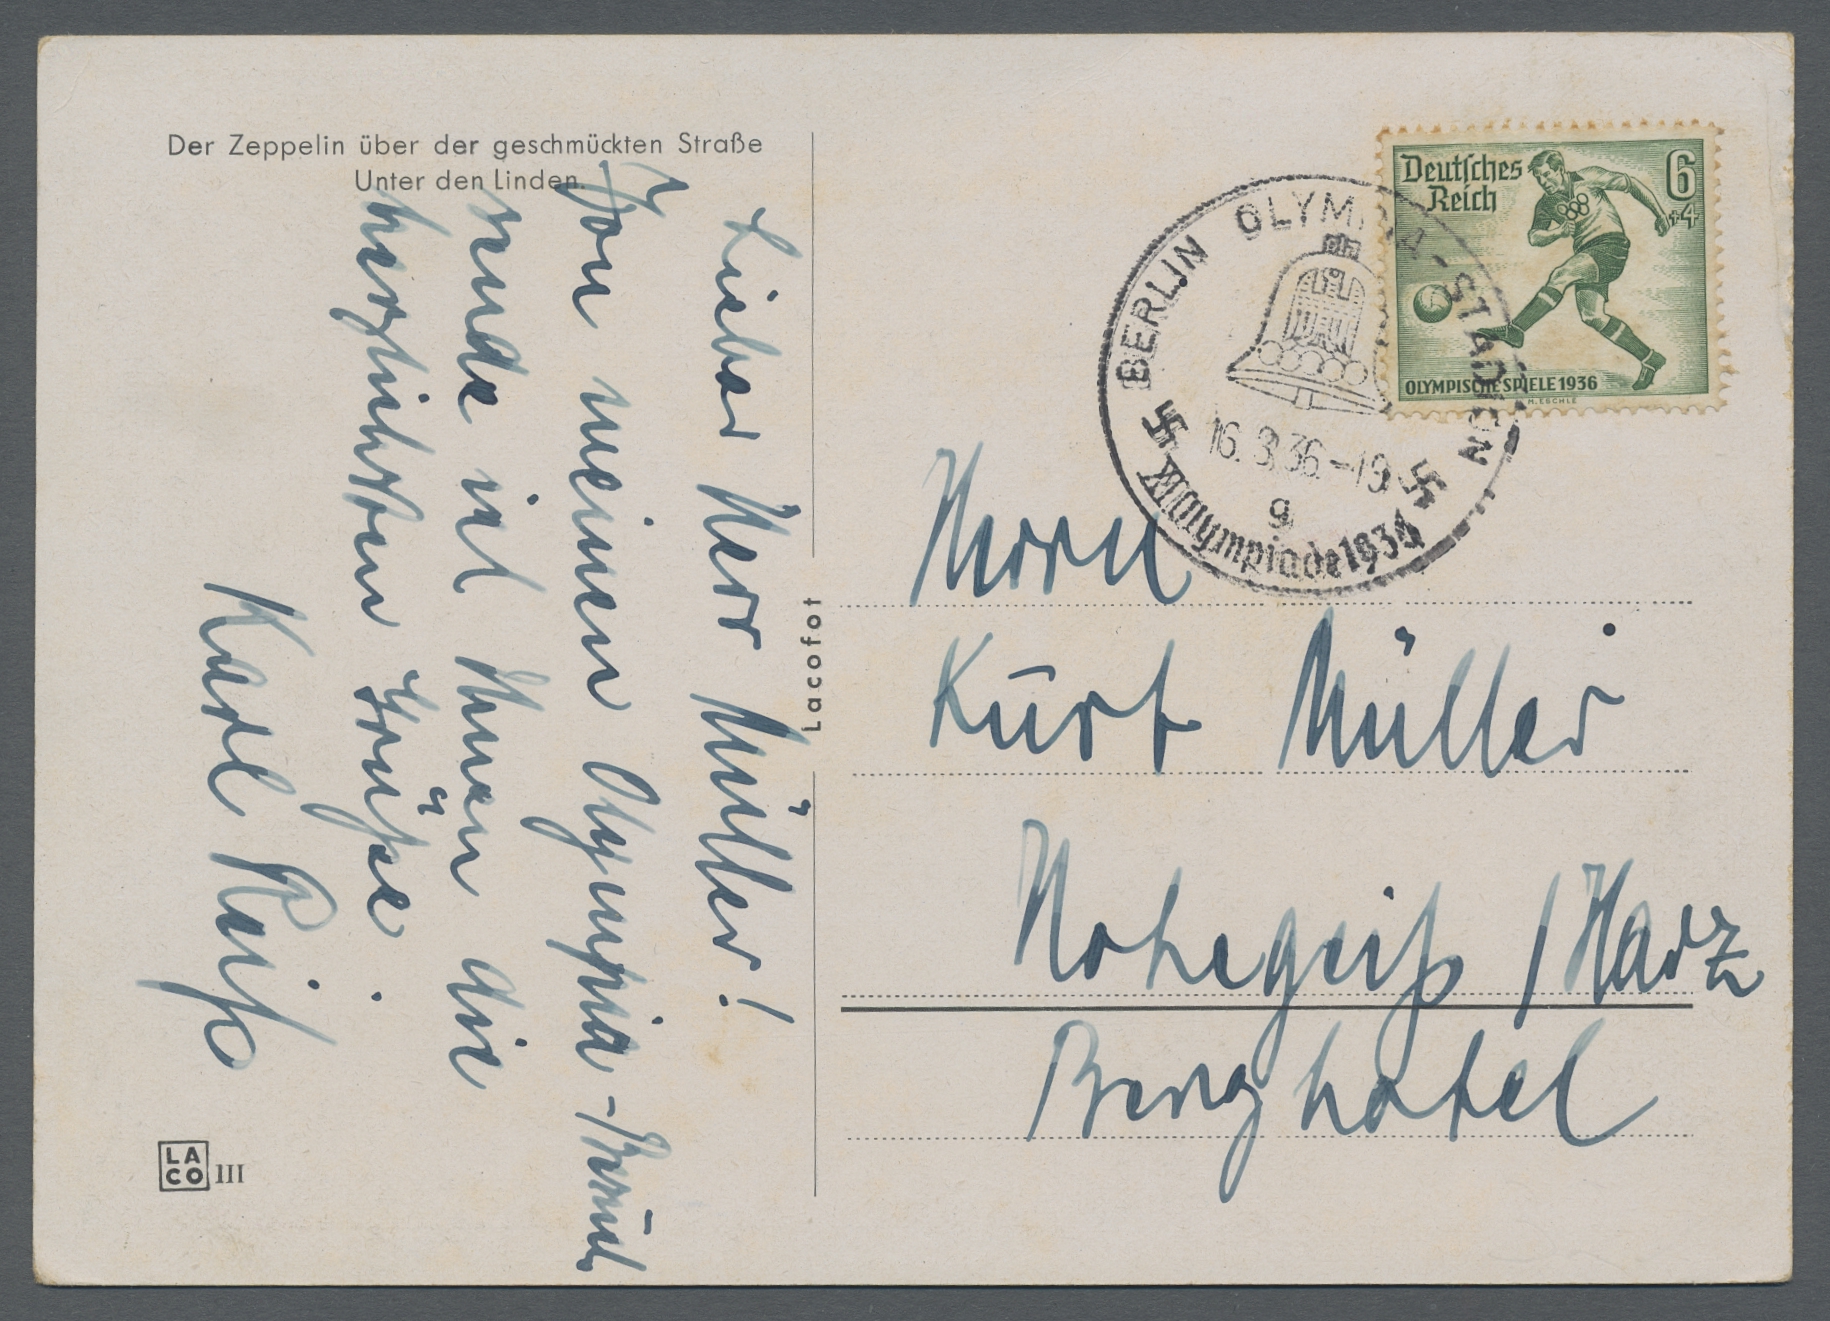 Der Zeppelin über der geschmückten Straße
Unter den Linden.
Lieber Herr Müller!
Von meinem Olympia-Besuch
sende ich Ihnen die
herzlichsten Grüße.
Karl Reiß
LA
CO III
Lacofot
Deutsches
Reich
6
+4
OLYMPISCHE SPIELE 1936
M. ESCHLE
BERLIN OLYMPIA-STADION
16.8.36-19
g
XI. Olympiade 1936
Herrn
Kurt Müller
Hohegeiß / Harz
Berghotel